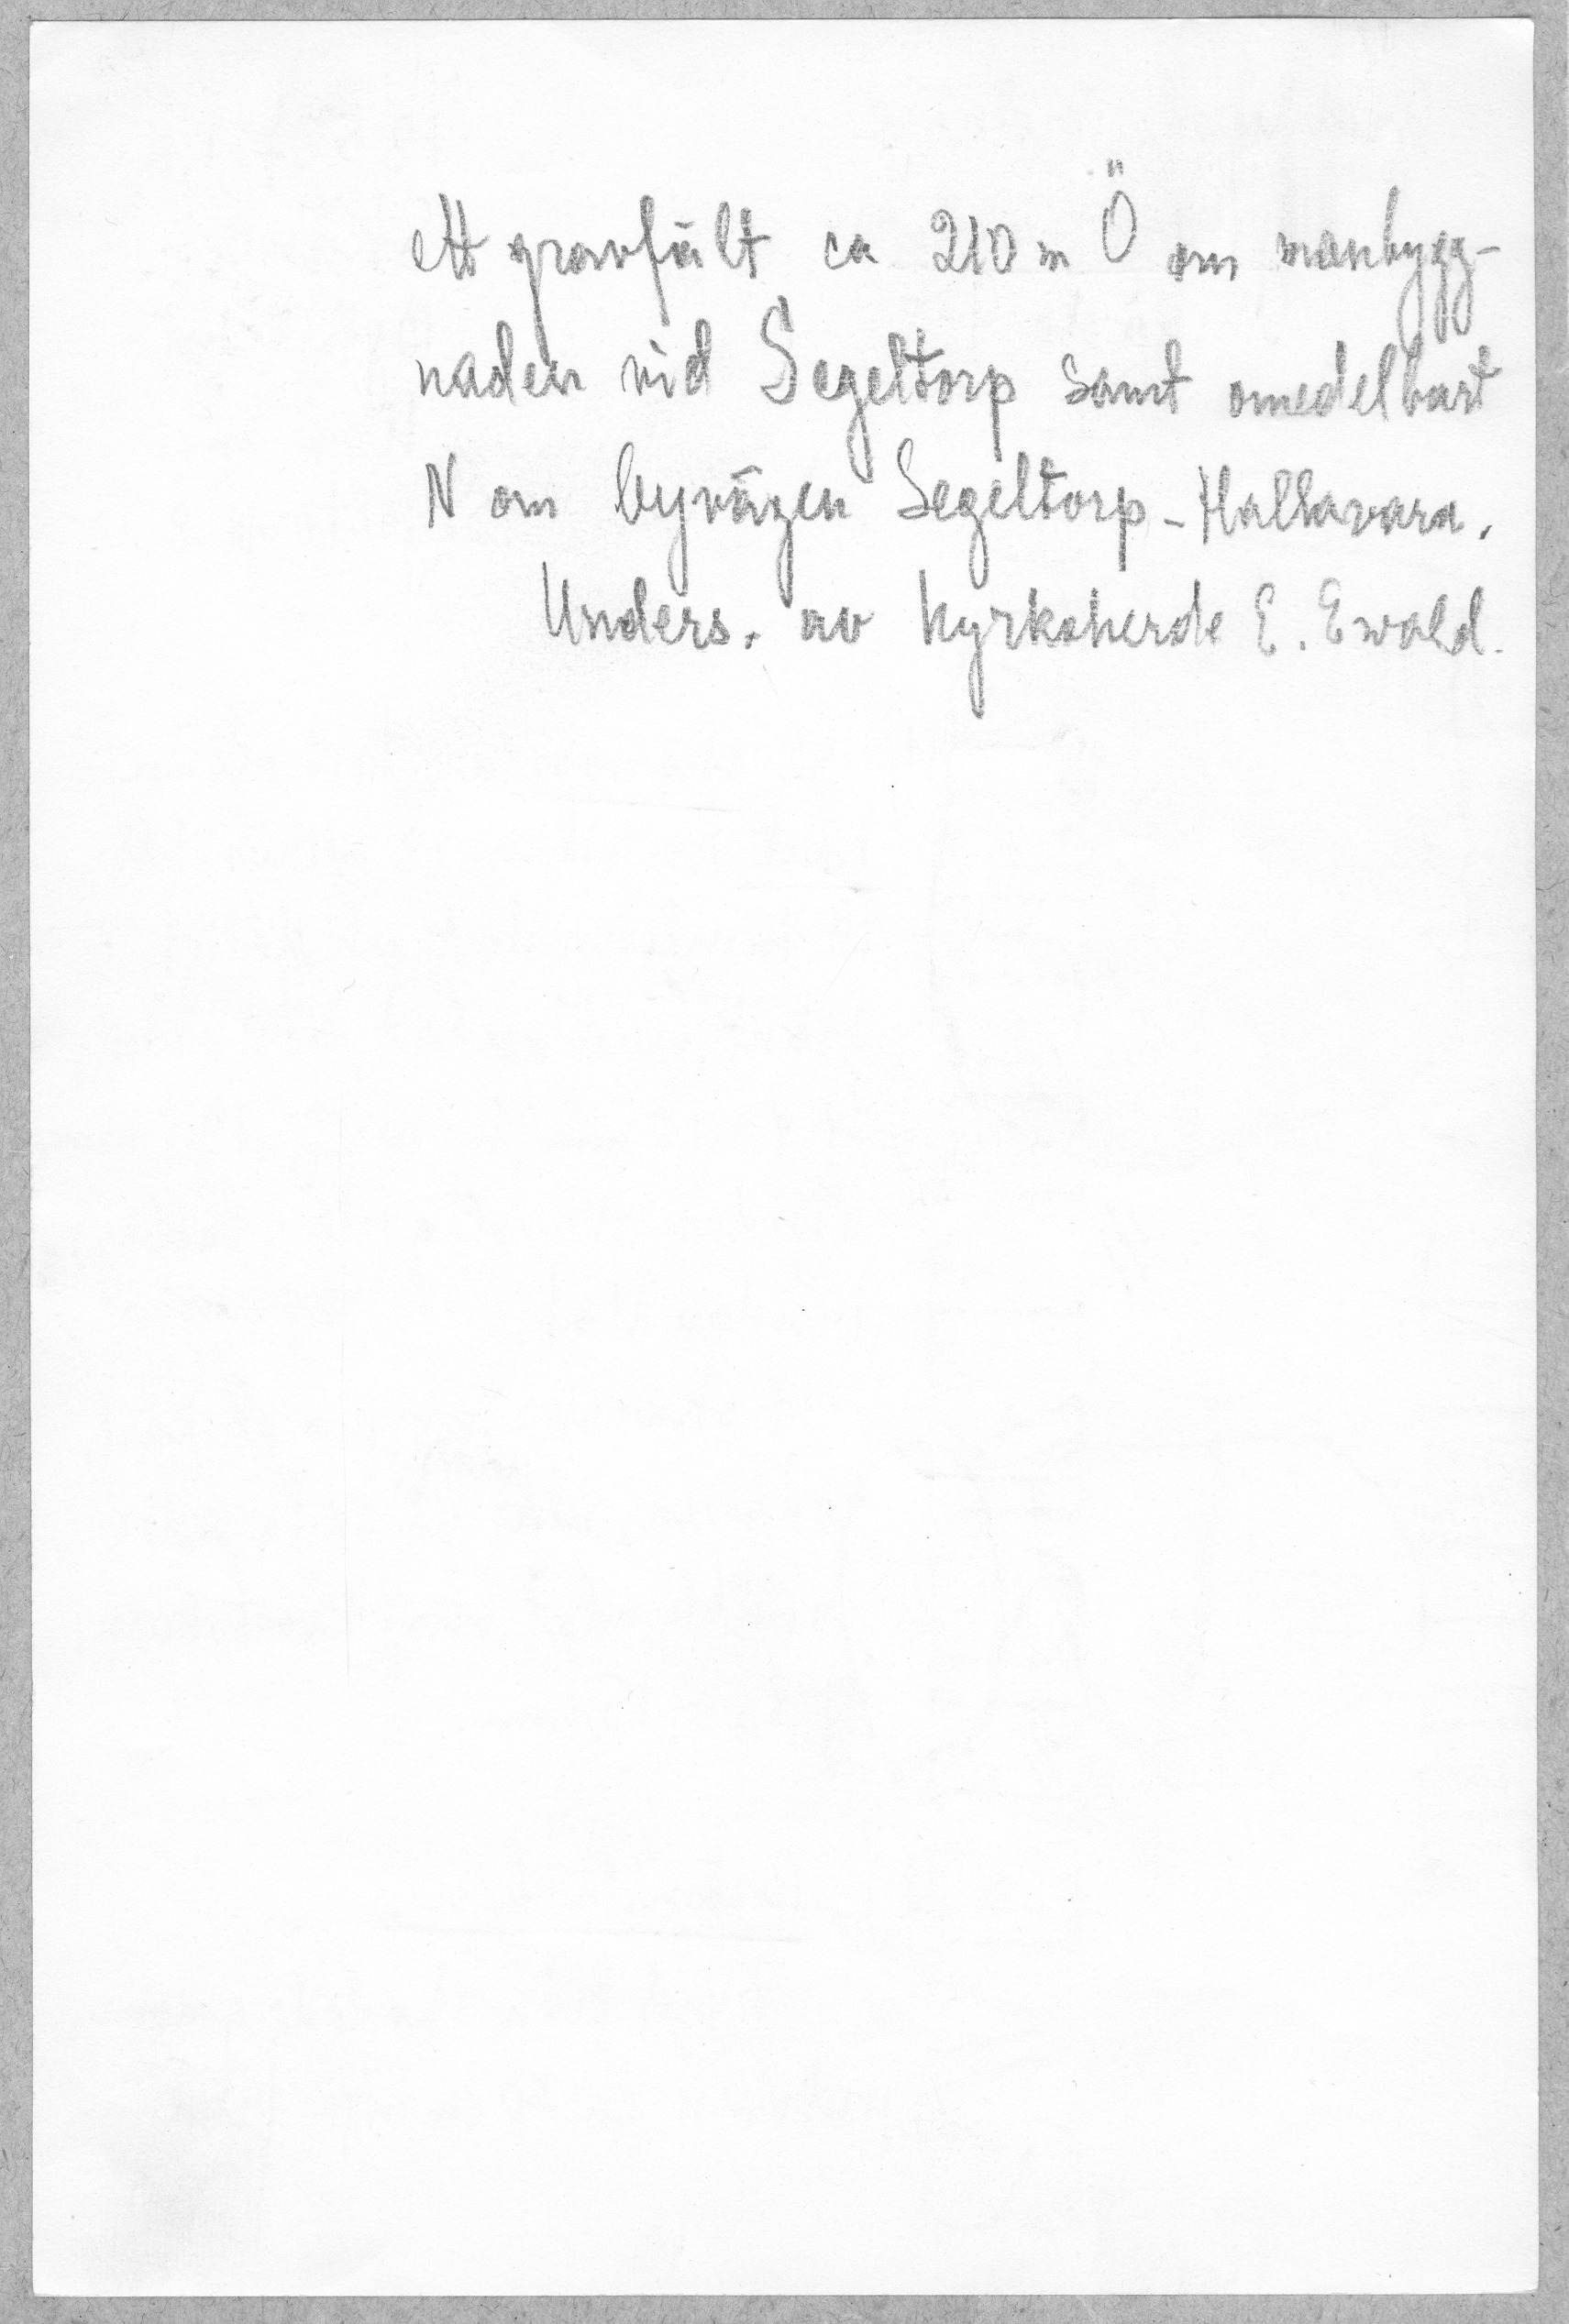 ett gravfält ca 210 m Ö om manbygg-
naden vid Segeltorp samt omedelbart
N om byvägen Segeltorp - Hallavara.
Unders. av kyrkoherde E. Ewald.